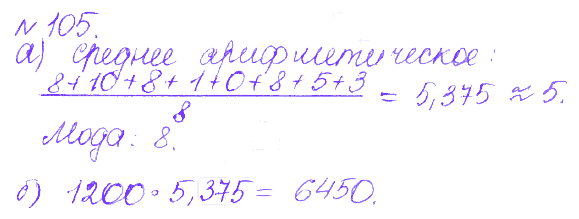 № 105.
а) среднее арифметическое:
8+10+8+1+0+8+5+3
= 5,375 ≈ 5.
8
Мода: 8.
б) 1200 · 5,375 = 6450.